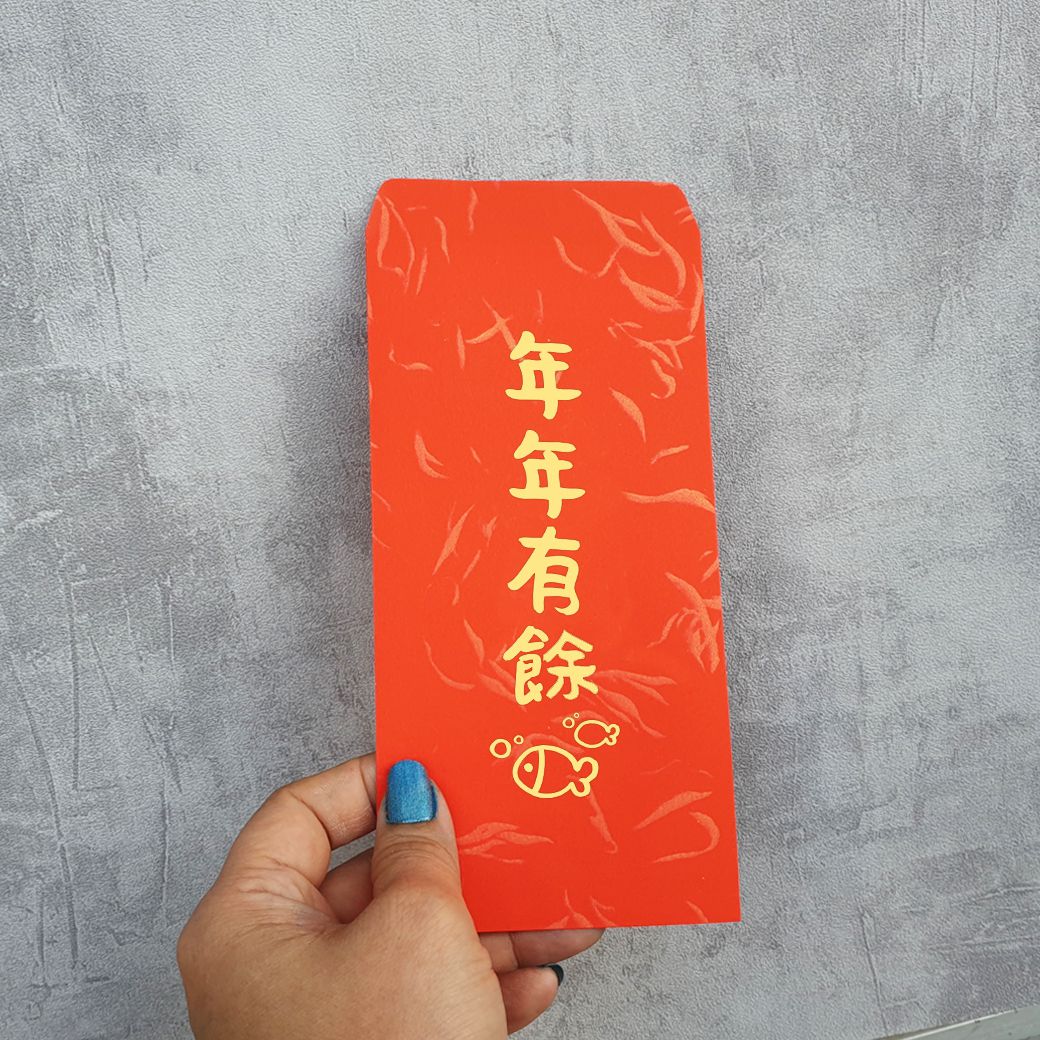 年年有餘